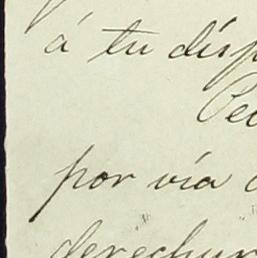 á tu disp
Pe
por vía
derechur